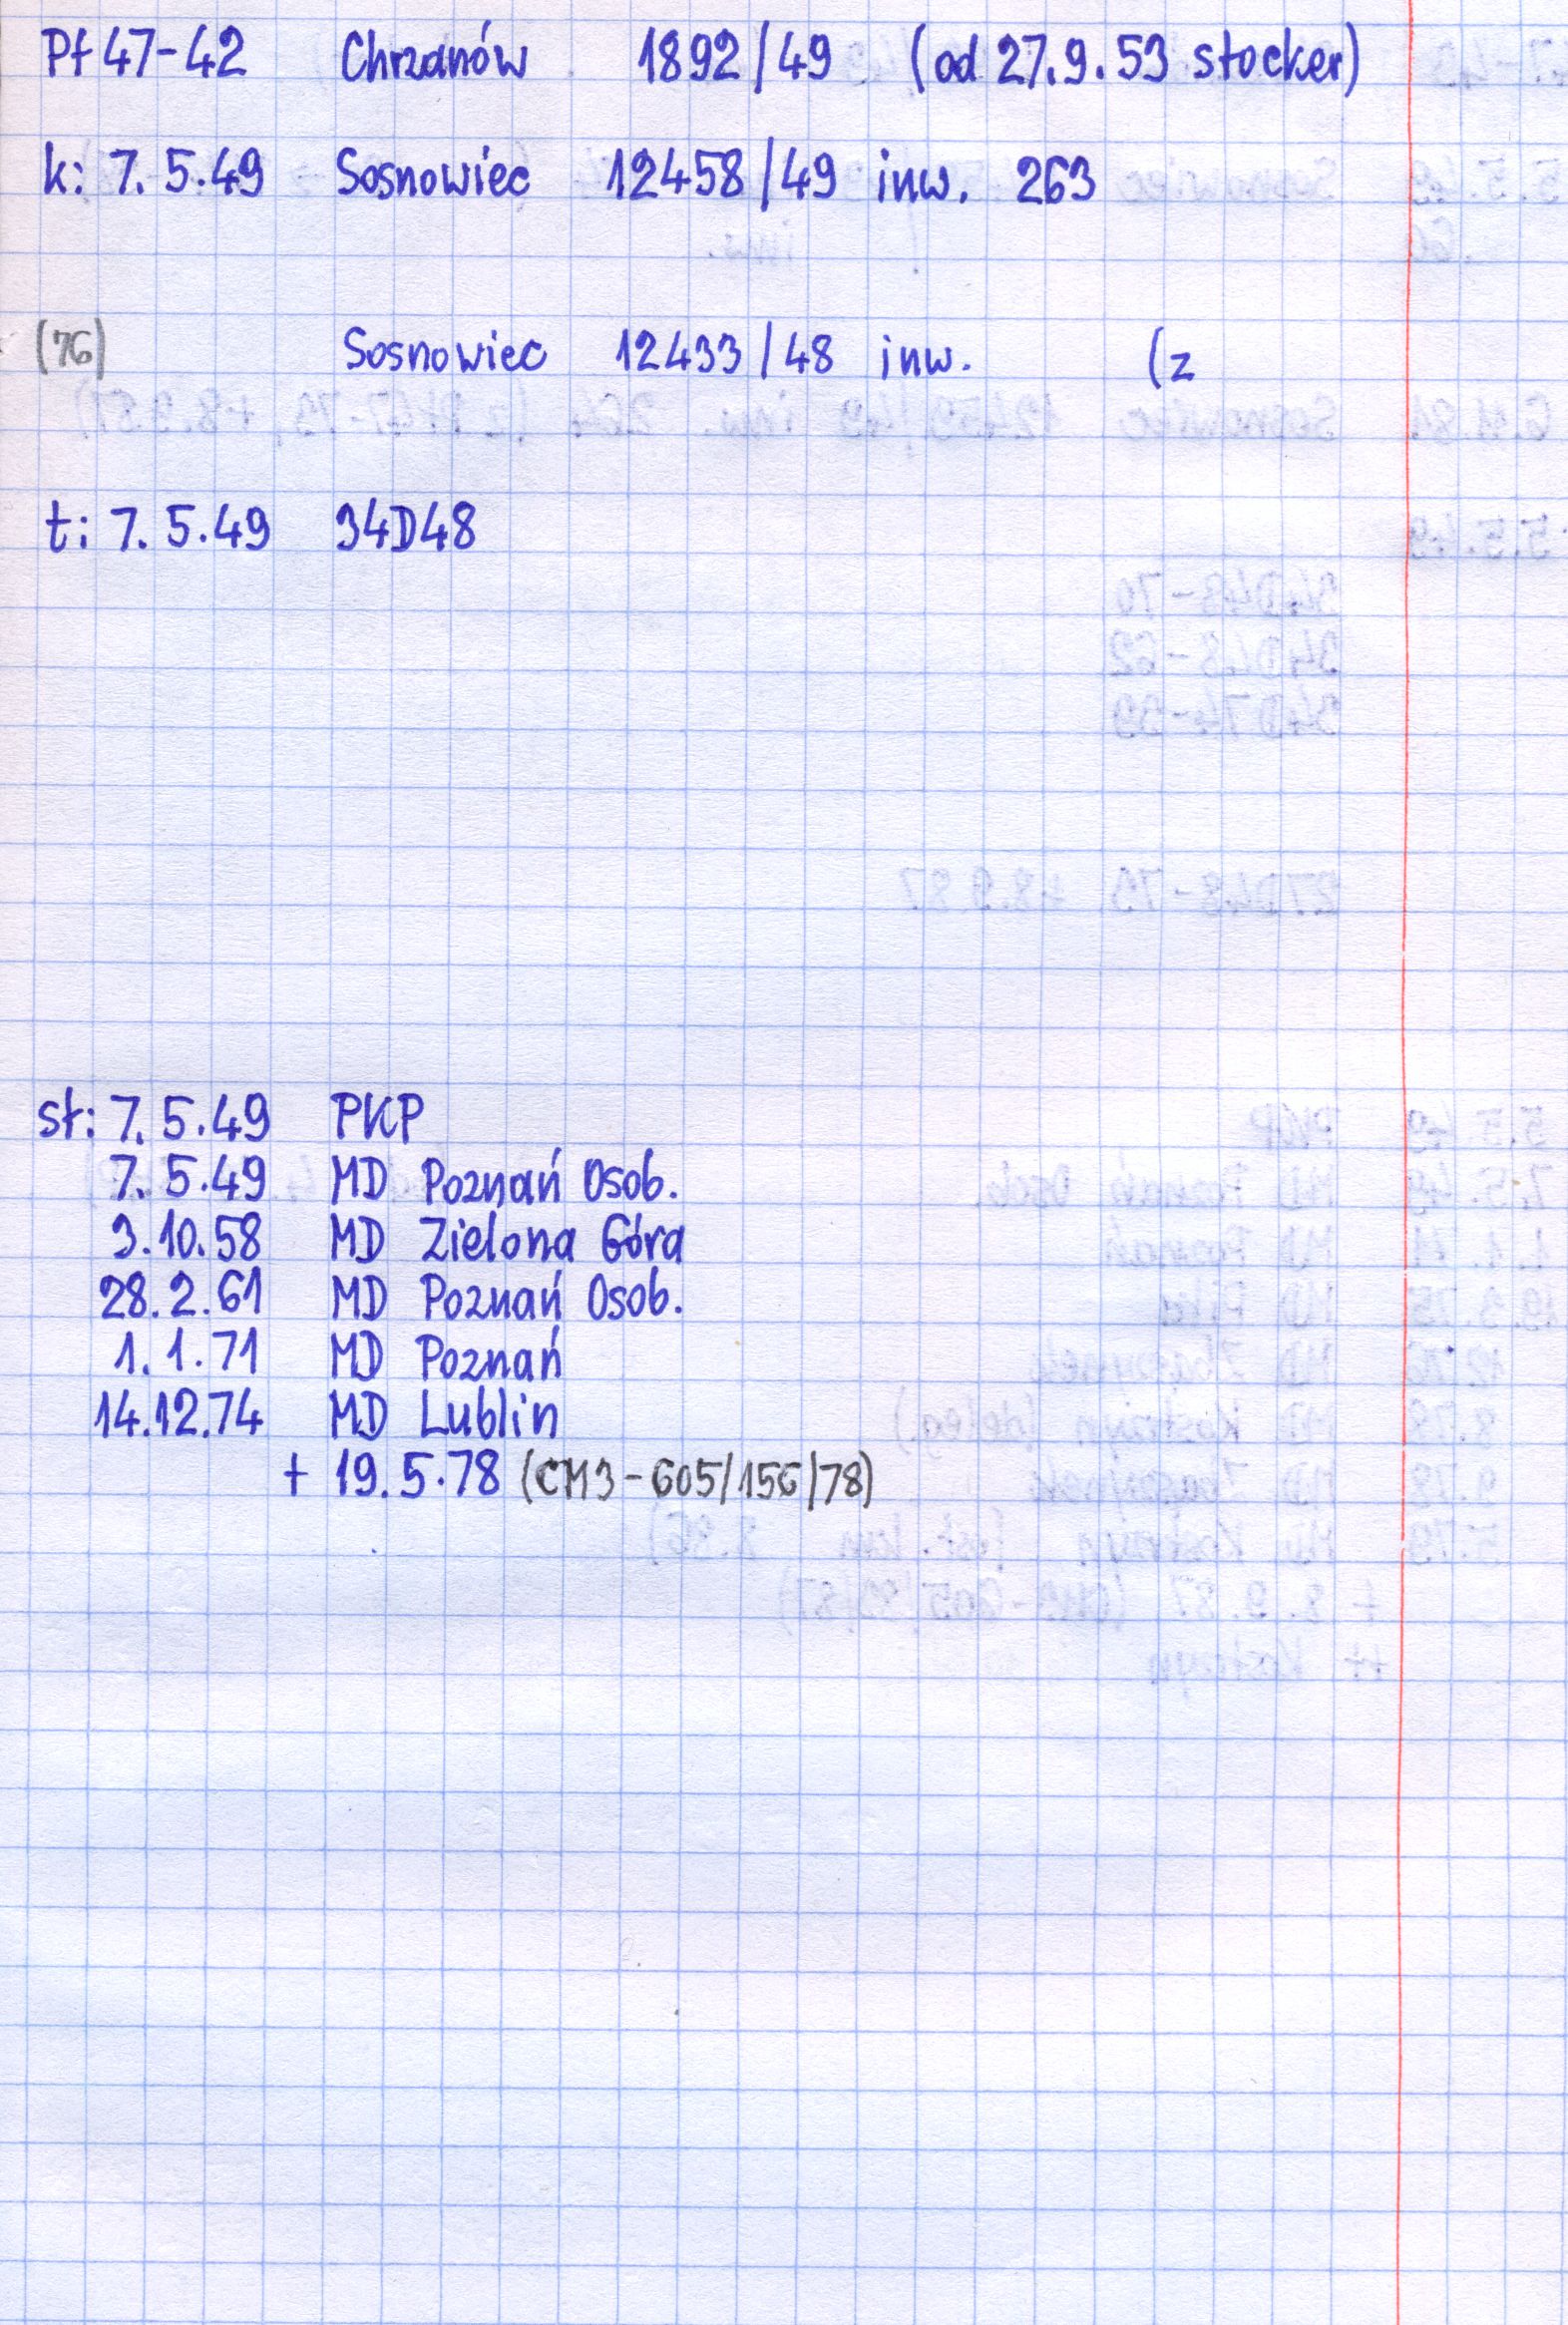 Pt 47-42 Chrzanów 1892/49 (od 27.9.53 stocker)
k: 7.5.49 Sosnowiec 12458/49 inw. 263
(76) Sosnowiec 12433/48 inw. (z
t: 7.5.49 34D48
st: 7.5.49 PKP
7.5.49 MD Poznań Osob.
3.10.58 MD Zielona Góra
28.2.61 MD Poznań Osob.
1.1.71 MD Poznań
14.12.74 MD Lublin
+ 19.5.78 (CM3-605/156/78)